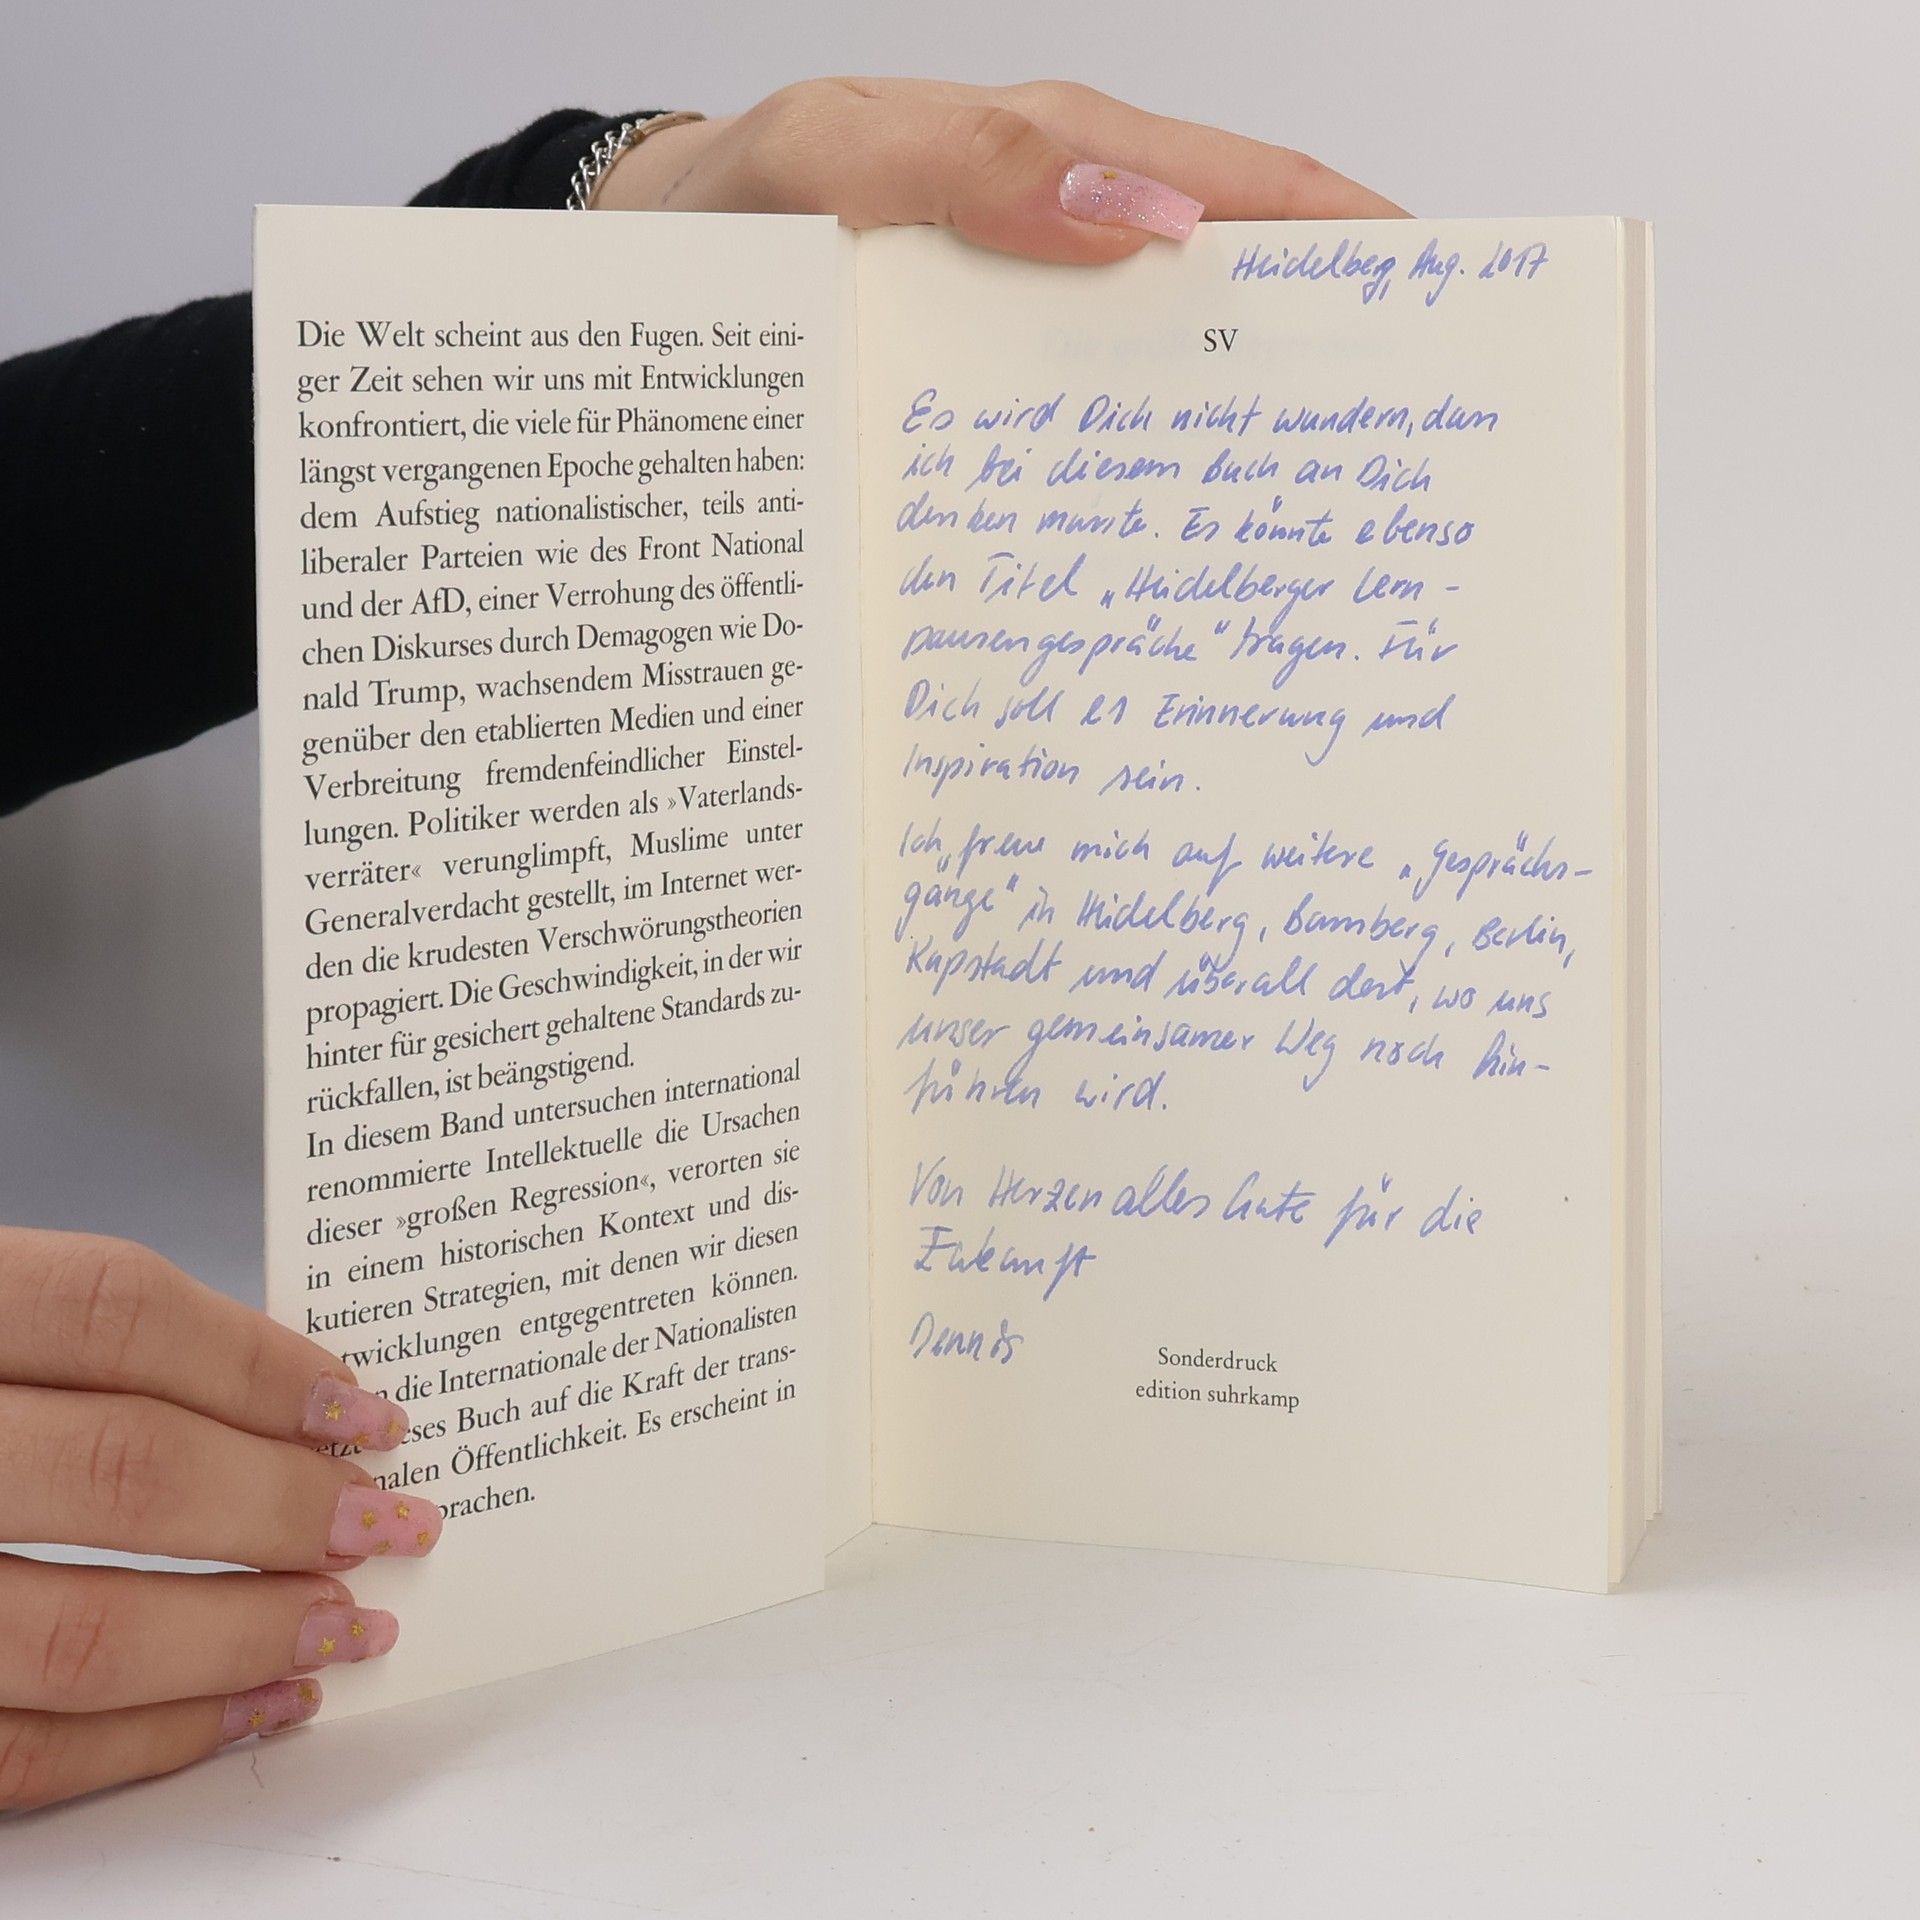 Die Welt scheint aus den Fugen. Seit eini-
ger Zeit sehen wir uns mit Entwicklungen
konfrontiert, die viele für Phänomene einer
längst vergangenen Epoche gehalten haben:
dem Aufstieg nationalistischer, teils anti-
liberaler Parteien wie des Front National
und der AfD, einer Verrohung des öffentli-
chen Diskurses durch Demagogen wie Do-
nald Trump, wachsendem Misstrauen ge-
genüber den etablierten Medien und einer
Verbreitung fremdenfeindlicher Einstel-
lungen. Politiker werden als »Vaterlands-
verräter« verunglimpft, Muslime unter
Generalverdacht gestellt, im Internet wer-
den die krudesten Verschwörungstheorien
propagiert. Die Geschwindigkeit, in der wir
hinter für gesichert gehaltene Standards zu-
rückfallen, ist beängstigend.
In diesem Band untersuchen international
renommierte Intellektuelle die Ursachen
dieser »großen Regression«, verorten sie
in einem historischen Kontext und dis-
kutieren Strategien, mit denen wir diesen
twicklungen entgegentreten können.
n die Internationale der Nationalisten
etzt eses Buch auf die Kraft der trans-
nalen Öffentlichkeit. Es erscheint in
prachen.
Heidelberg, Aug. 2017
SV
Es wird Dich nicht wundern, dass
ich bei diesem Buch an Dich
denken musste. Es könnte ebenso
den Titel „Heidelberger Lern-
pausengespräche“ tragen. Für
Dich soll es Erinnerung und
Inspiration sein.
Ich freue mich auf weitere „Gesprächs-
gänge“ in Heidelberg, Bamberg, Berlin,
Kapstadt und überall dort, wo uns
unser gemeinsamer Weg noch hin-
führen wird.
Von Herzen alles Gute für die
Zukunft
Dennis
Sonderdruck
edition suhrkamp